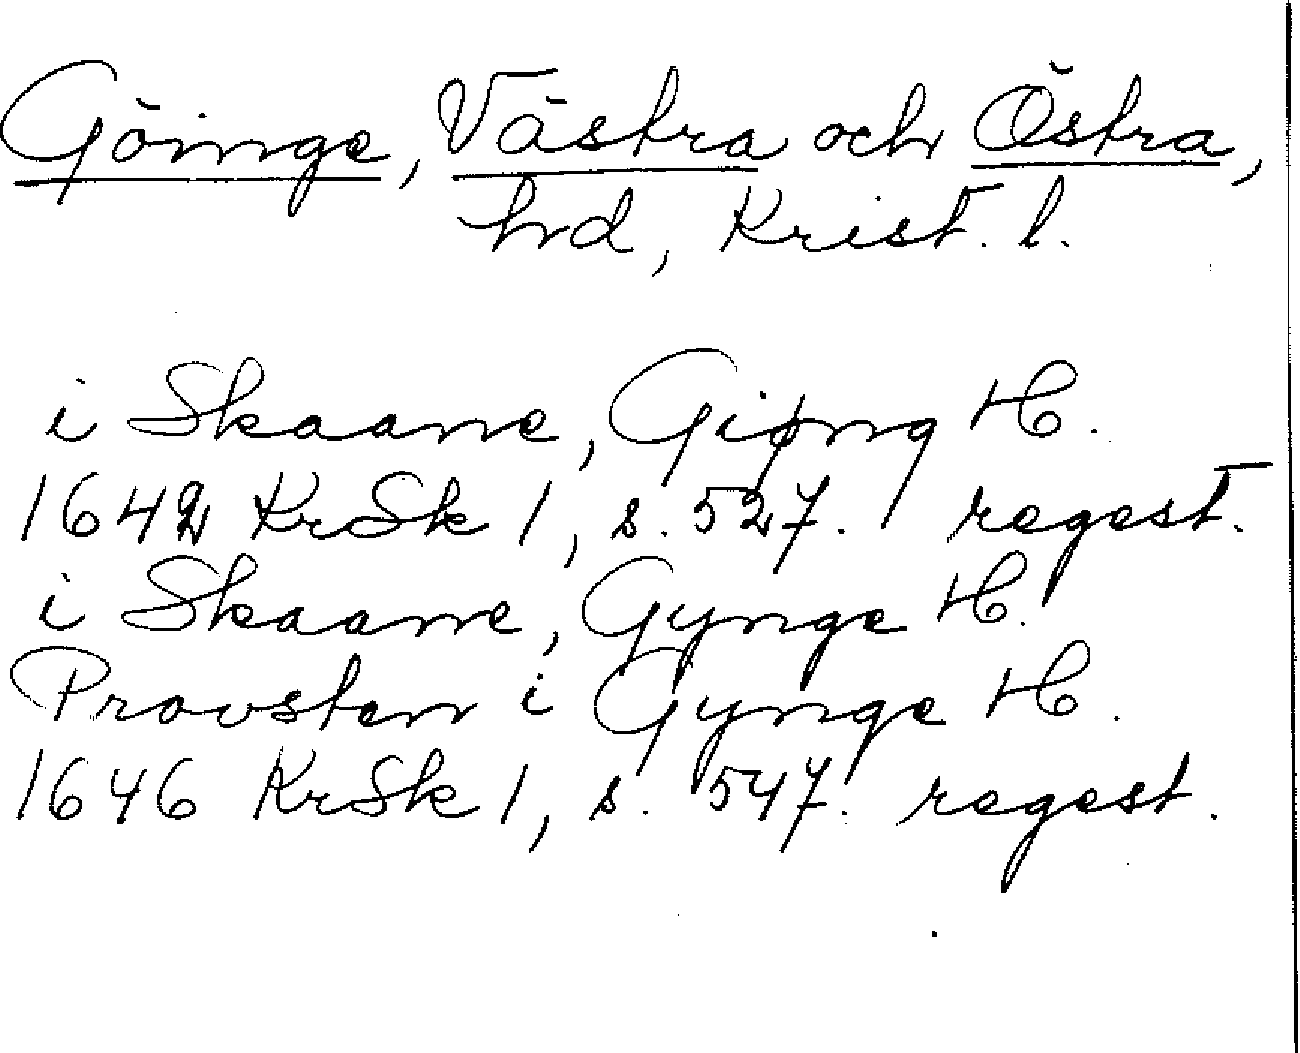 Göinge, Västra och Östra,
hrd, Krist. l.
i Skaane, Giøng H.
1642 KrSk 1, s. 527. regest.
i Skaane, Gynge H.
Provsten i Gynge H.
1646 KrSk 1, s. 547. regest.